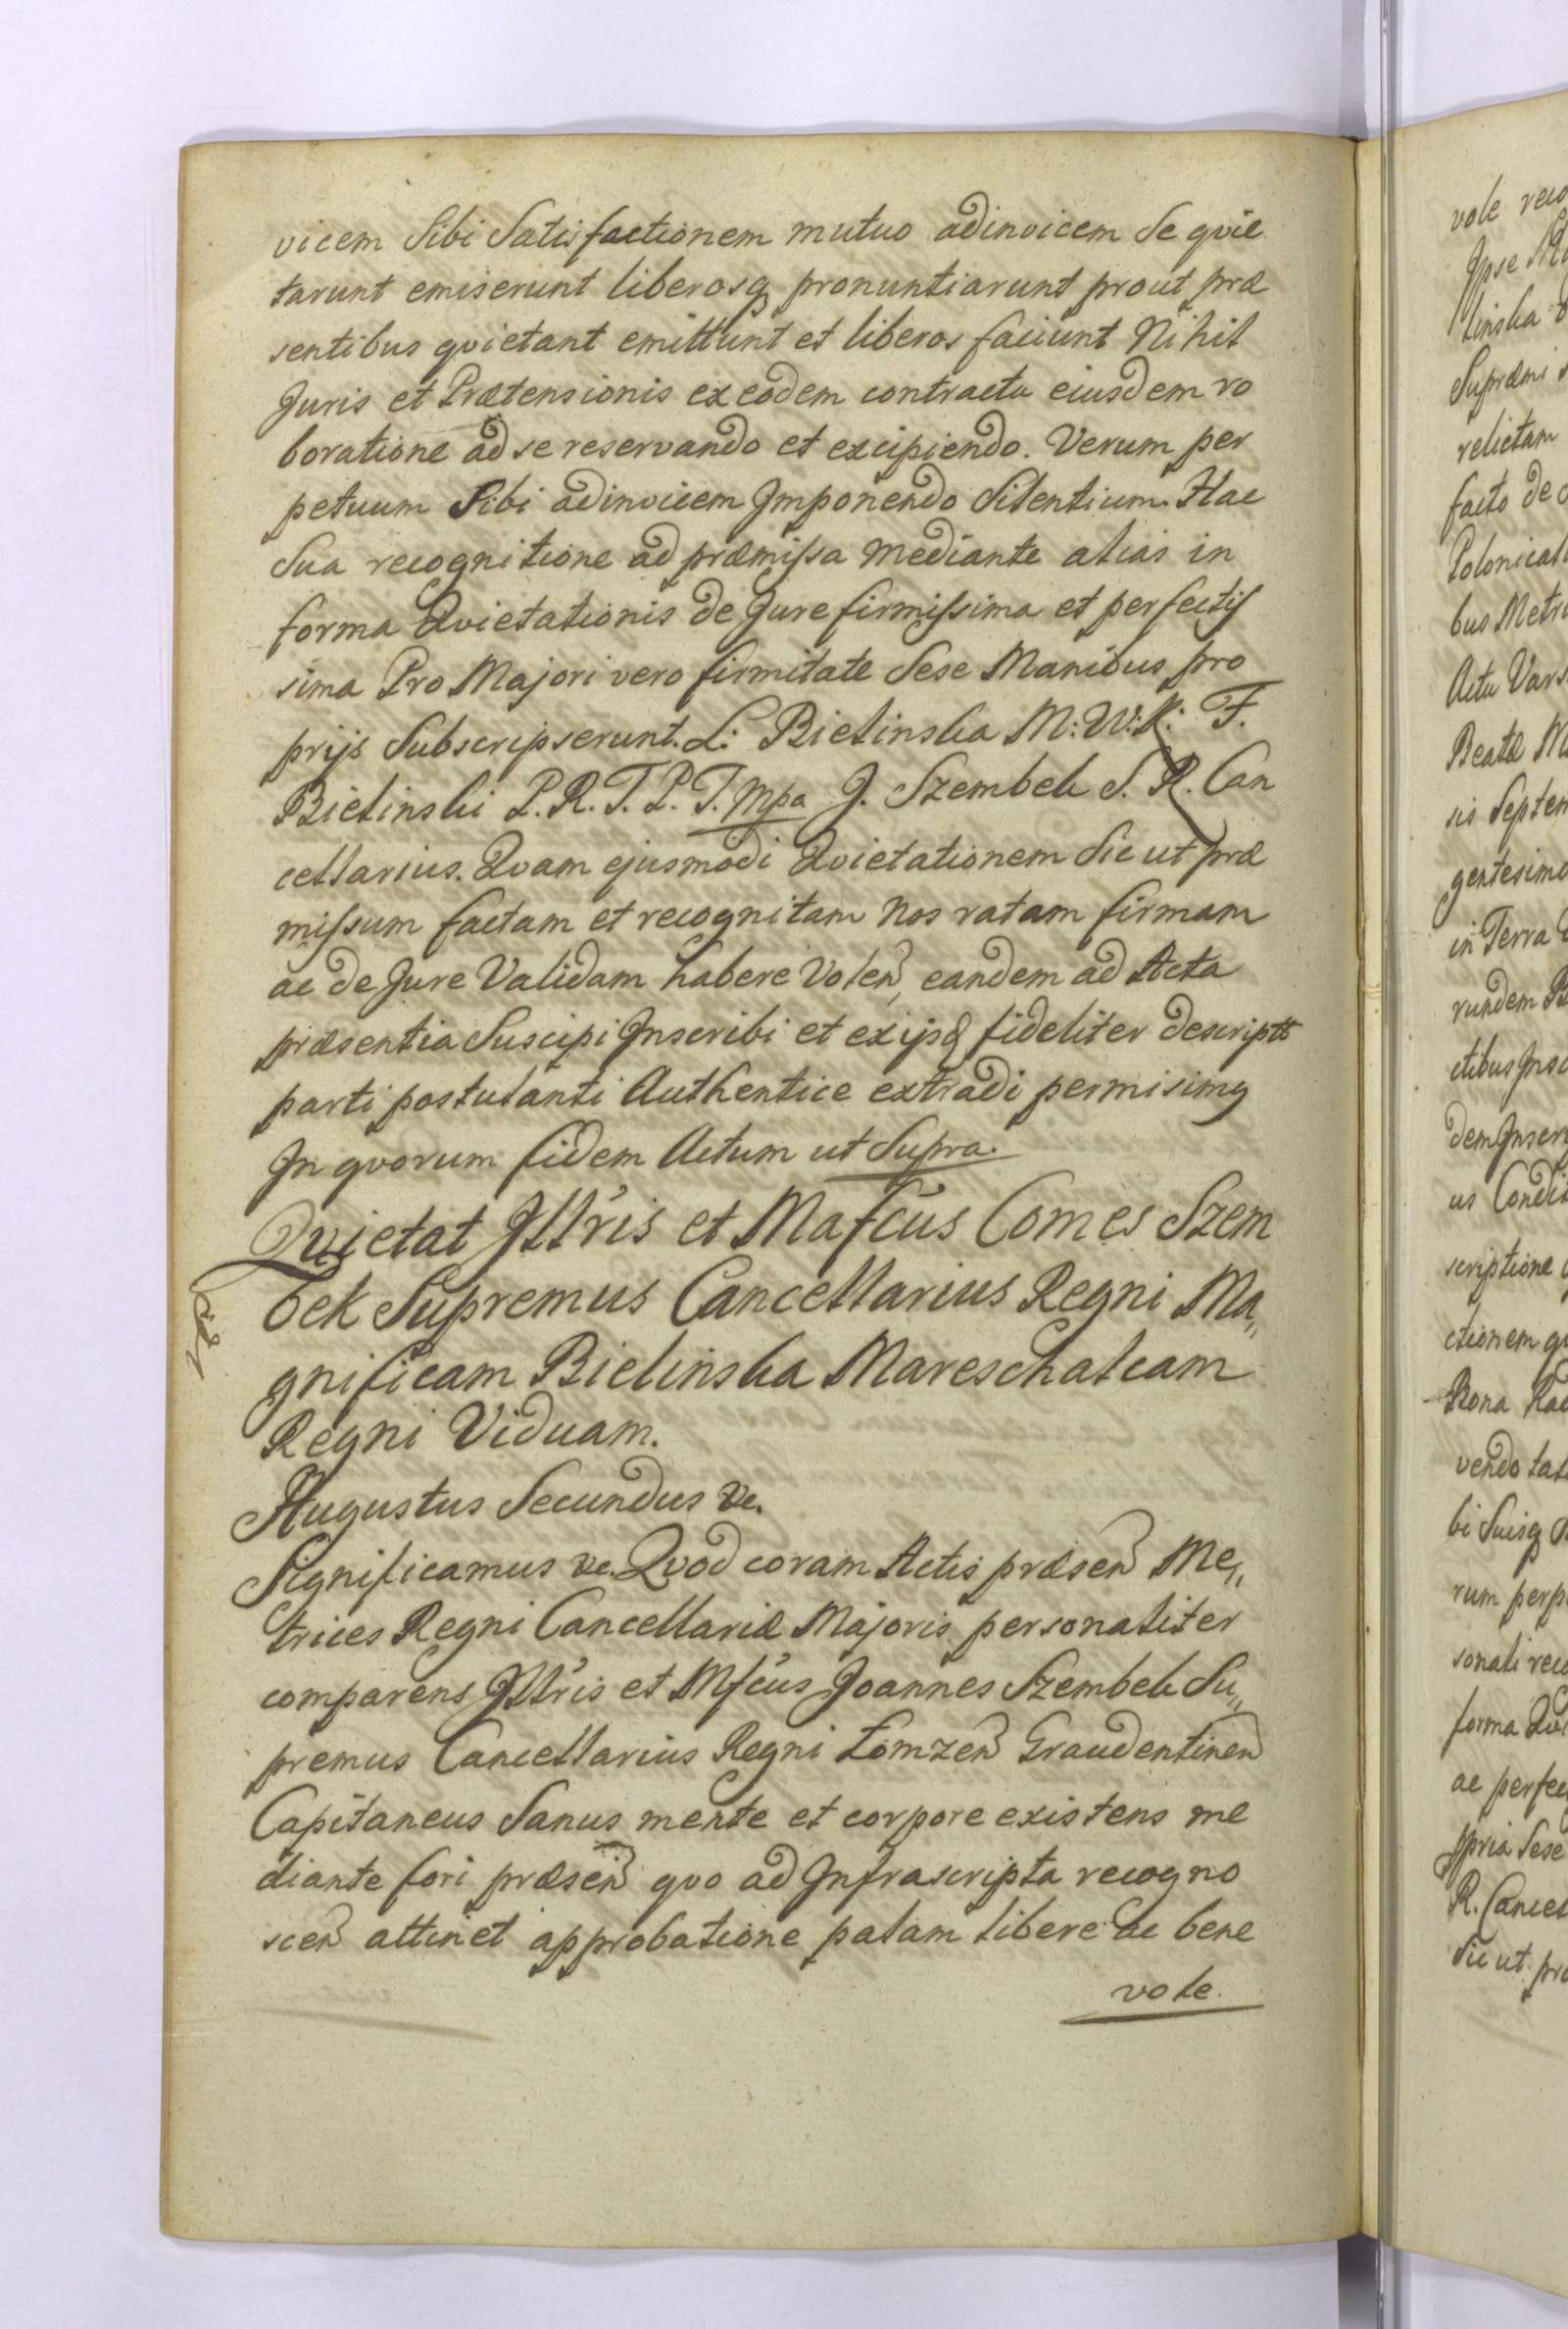 vicem Sibi Satisfactionem mutuo adinvicem Se qvie
tarunt emiserunt liberosq pronuntiarunt prout præ
sentibus qvietant emittunt et liberos faciunt Nihil
Juris et Prætensionis ex eodem contractu eiusdem ro
boratione ad se reservando et excipiendo. Verum per
petuum Sibi adinvicem Jmponendo Silentium. Hac
Sua recognitione ad præmissa mediante alias in
forma Qvietationis de Jure firmissima et perfectis
sima Pro Majori vero firmitate Sese Manibus pro
prijs Subscripserunt. L: Bielinska M: W: K: F.
Bielinski P. R. T. P. T. Mpa J. Szembek S. R. Can
cellarius. Qvam ejusmodi Qvietationem Sic ut præ
missum factam et recognitam Nos ratam firmam
ac de Jure Validam habere Volen, eandem ad Acta
præsentia Suscipi Jnscribi et ex ijsd fideliter descriptt
parti postulanti Authentice extradi permisimq
Jn qvorum fidem Actum ut Supra.
Qvietat Jllris et Mafcus Comes Szem
bek Supremus Cancellarius Regni Ma„
gnificam Bielinska Mareschalcam
Regni Viduam.
Augustus Secundus &c.
Significamus &c. Qvod coram Actis præsen Me„
trices Regni Cancellariæ Majoris personaliter
comparens Jllris et Mfcus Joannes Szembek Su„
premus Cancellarius Regni Łomzen Graudentinen
Capitaneus Sanus mente et corpore existens me
diante fori præsen qvo ad Jnfrascripta recogno
scen attinet approbatione palam libere ac bene
vole.
vole reco
Jpse
linska
Supræmi
relictam
facto de
Polonical
bus Metri
Actu Vars
Beatæ Ma
sis Septem
gentesimo
in Terra
rundem
ctibus Jnsc
dem Jnscr
us Condit
scriptione
ctionem qv
Bona
vendo tal
bi Suisq
rum perp
sonali reco
forma Qvi
ac perfec
ppria Sese
R. Cancel
Sic ut præ